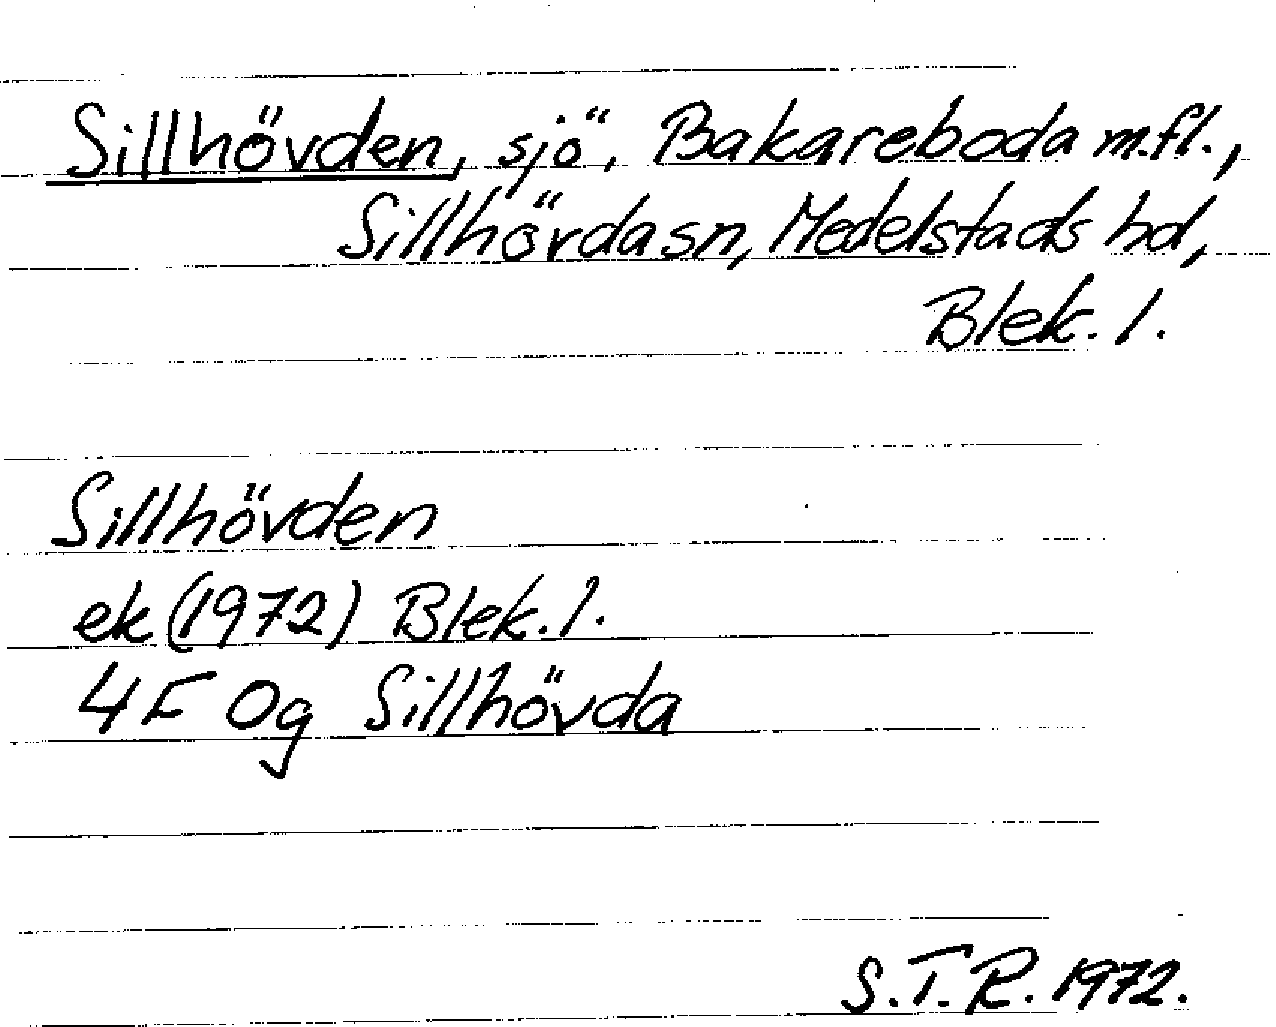 Sillhövden, sjö, Bakareboda m.fl.,
Sillhövda sn, Medelstads hd,
Blek. l.
Sillhövden
ek (1972) Blek. l.
4F 0g Sillhövda
S.T.R. 1972.